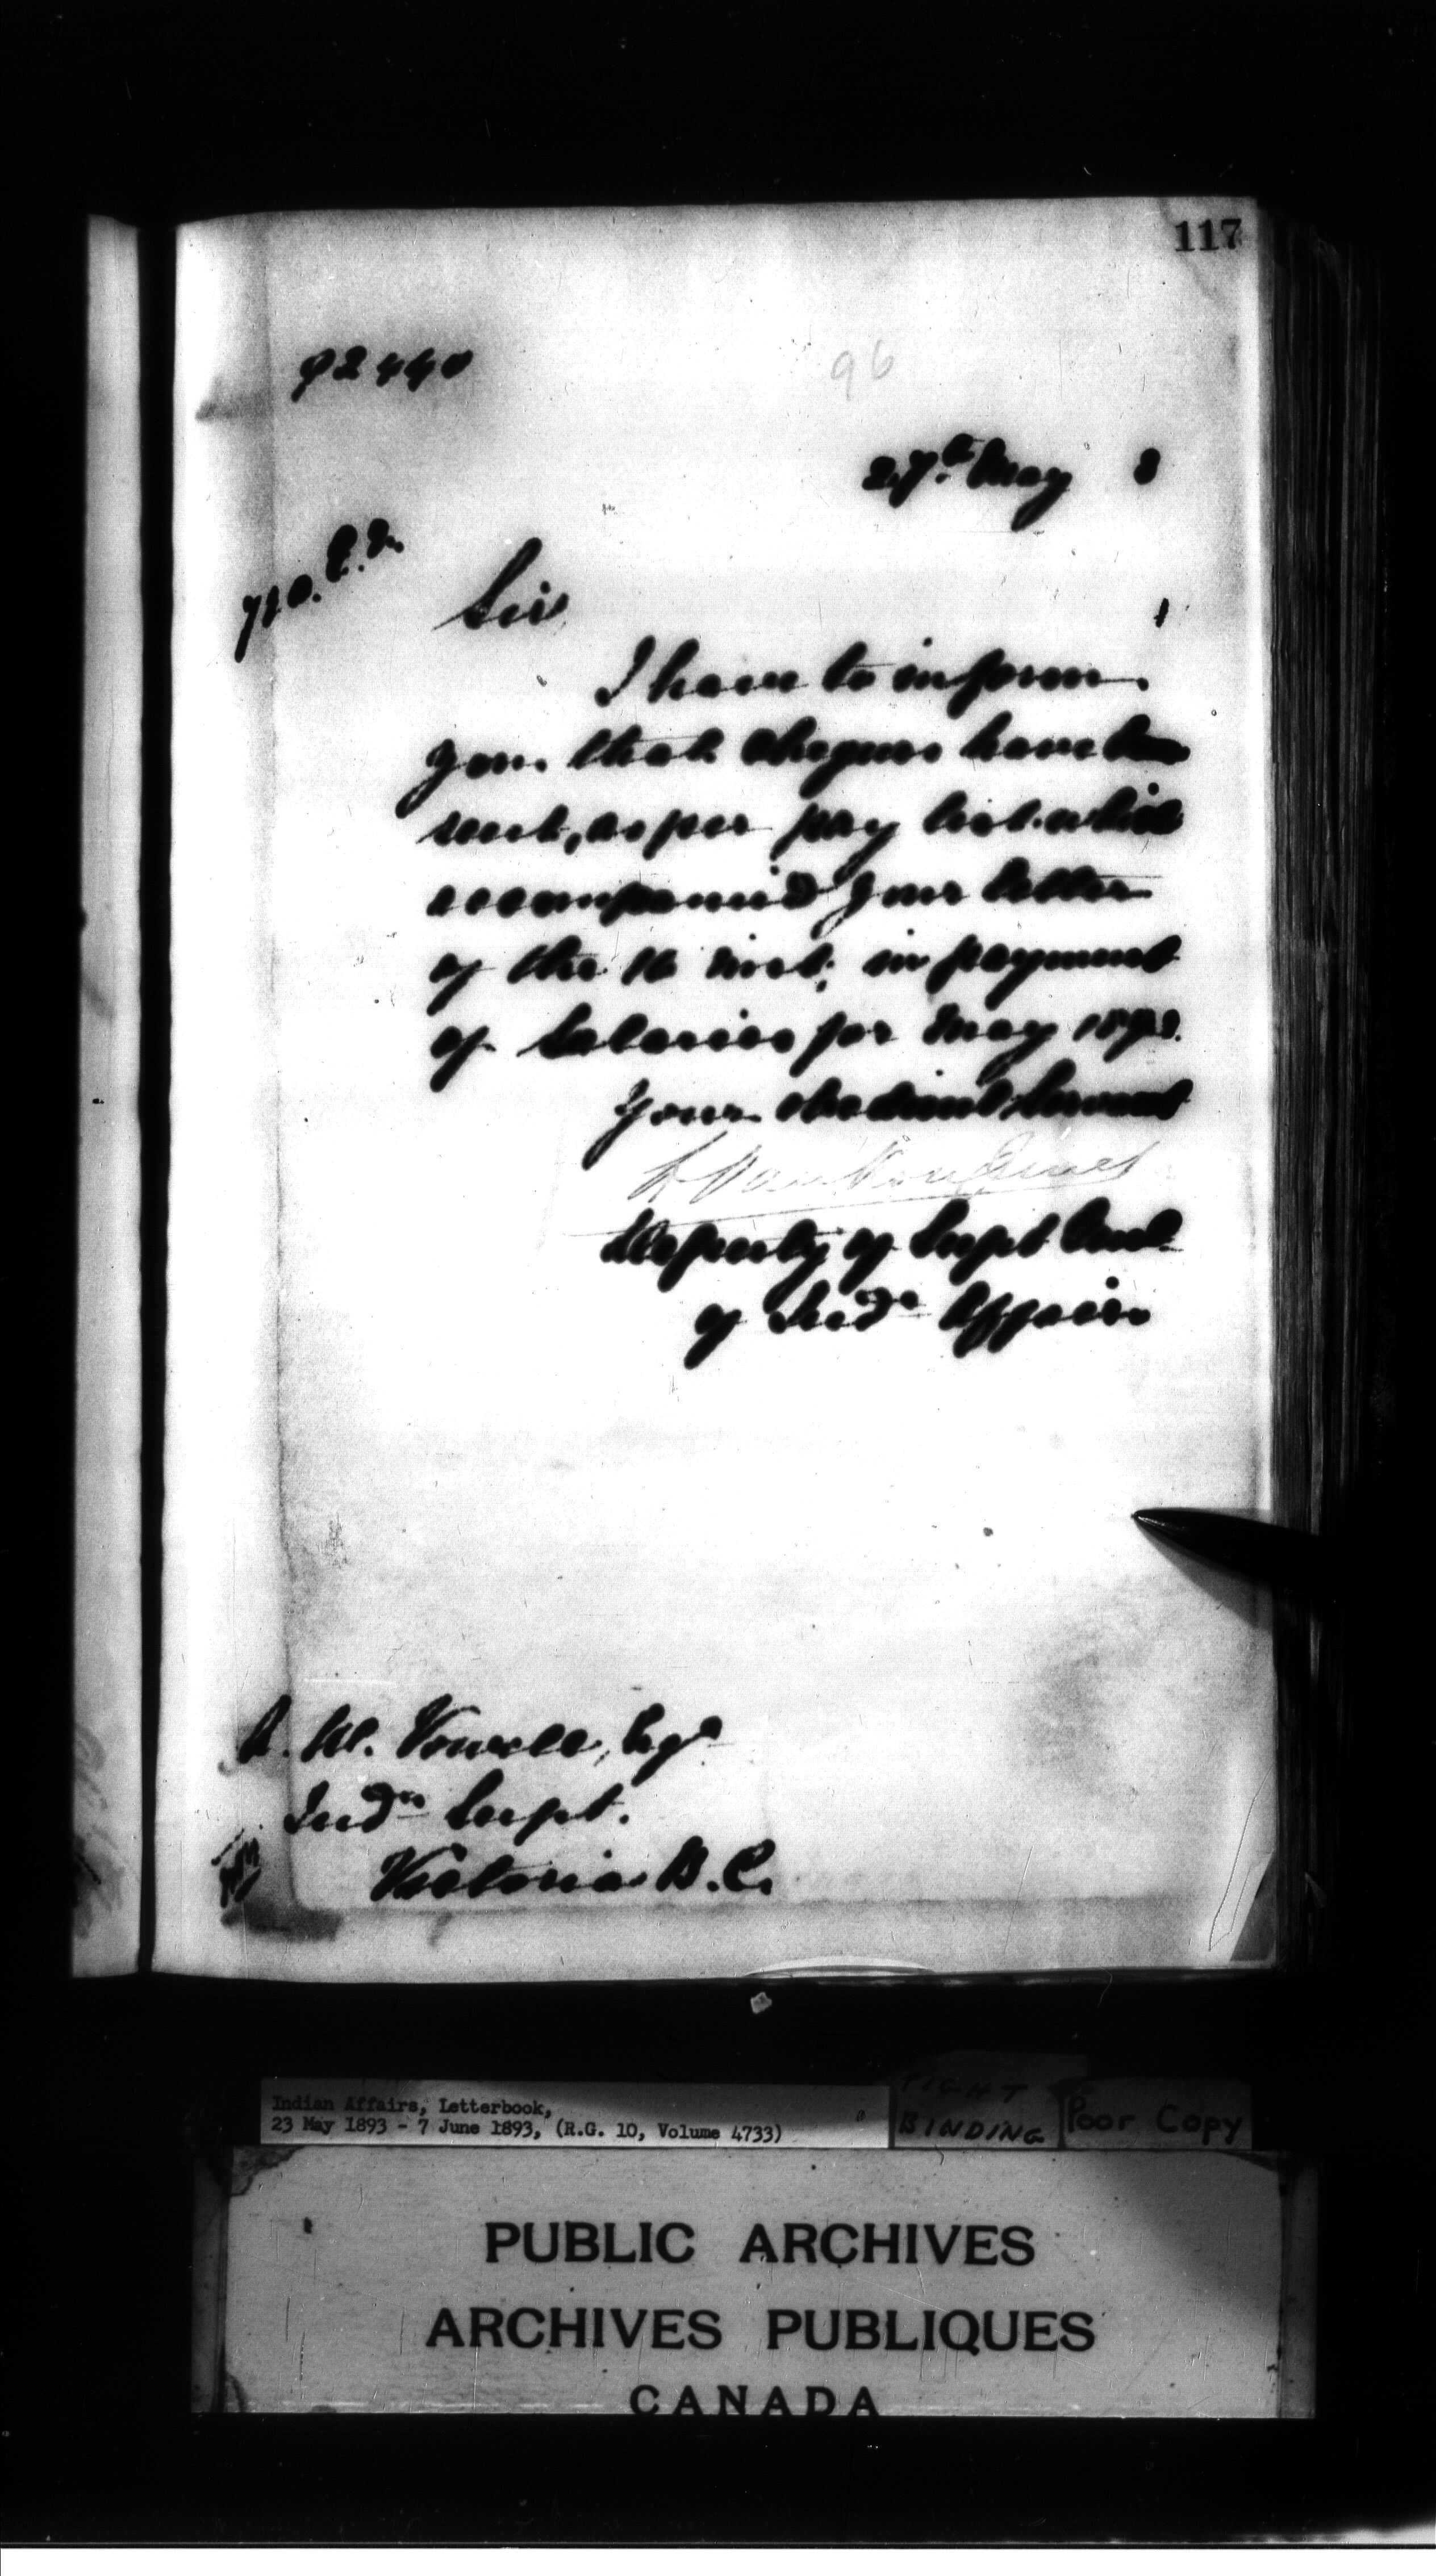 117
92440
96
27th May 3
Sir
I have to inform
you that cheques have been
sent, as per pay list which
accompanied your letter
of the 16 inst; in payment
of Salaries for May 1893.
Your obedient Servant
L VanKoughnet
Deputy of Supt Genl.
of Indn Affairs
A. W. Vowell, Esqr
Indn Supt.
Victoria B.C.
Indian Affairs, Letterbook,
23 May 1893 - 7 June 1893, (R.G. 10, Volume 4733)
TIGHT
BINDING
Poor Copy
PUBLIC ARCHIVES
ARCHIVES PUBLIQUES
CANADA